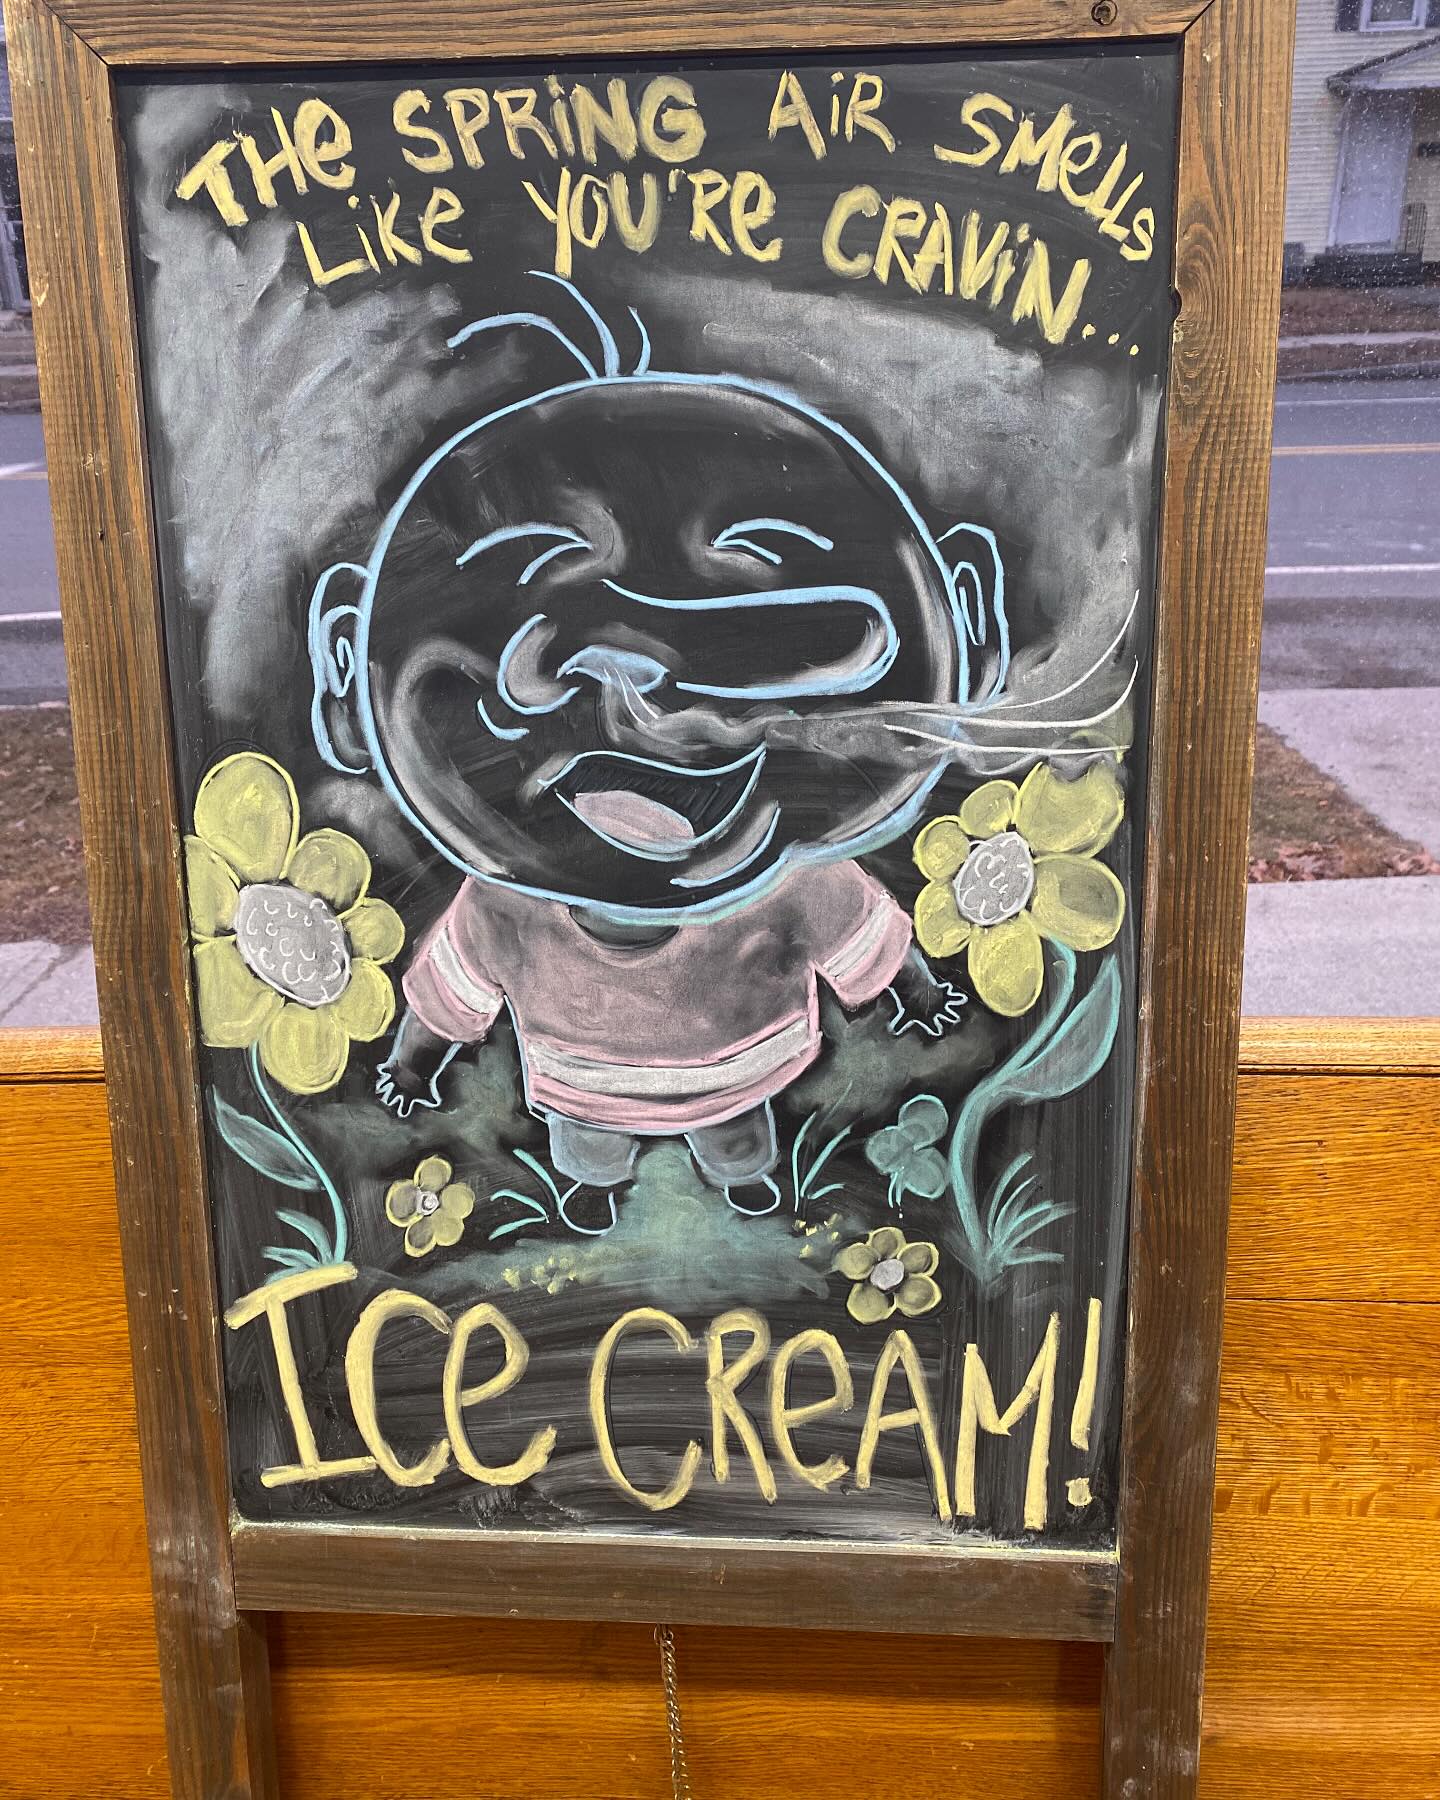 THe SPRiNG AiR SMeLLS
LiKe YOU'Re CRAViN...
ICe CReAM!